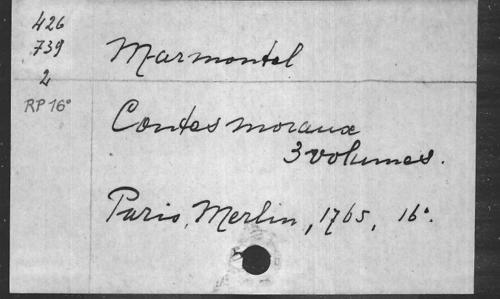 426
739
2
RP 16°
Marmontel
Contes moraux
3 volumes.
Paris, Merlin, 1765, 16°.